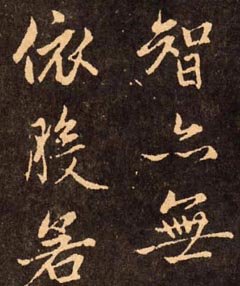 智亦無
依般若